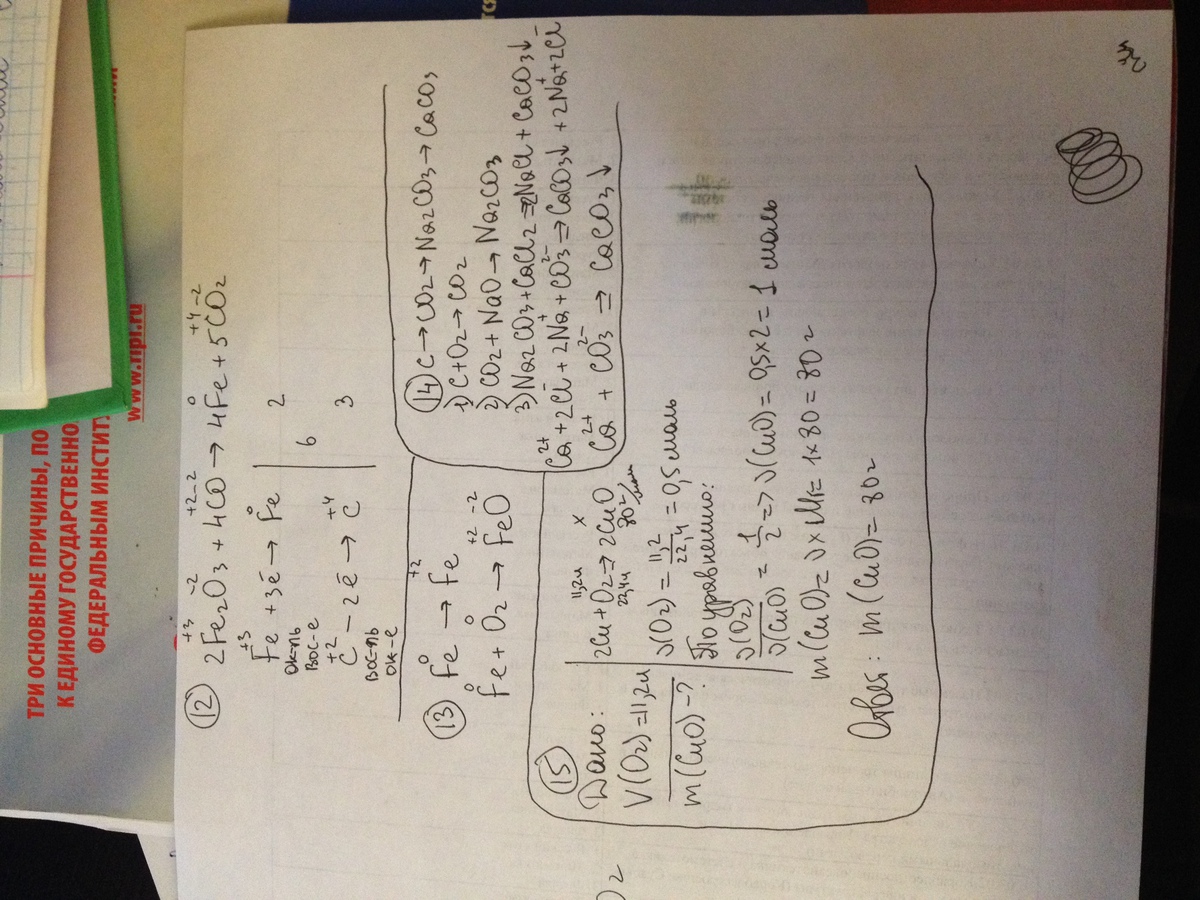 ТРИ ОСНОВНЫЕ ПРИЧИНЫ, ПО
К ЕДИНОМУ ГОСУДАРСТВЕННО
ФЕДЕРАЛЬНЫМ ИНСТИТ
www.fipi.ru
12
+3 -2 +2 -2 0 +4 -2
2Fe2O3 + 4CO → 4Fe + 5CO2
+3 0
Fe + 3ē → Fe 2
ок-ль
вос-е
6
+2 +4
C - 2ē → C 3
вос-ль
ок-е
13
0 +2
Fe → Fe
0 0 +2 -2
Fe + O2 → FeO
14 C → CO2 → Na2CO3 → CaCO3
1) C + O2 → CO2
2) CO2 + NaO → Na2CO3
3) Na2CO3 + CaCl2 → 2NaCl + CaCO3↓
Ca2+ + 2Cl- + 2Na+ + CO32- ⇒ CaCO3↓ + 2Na+ + 2Cl-
Ca2+ + CO32- ⇒ CaCO3↓
15
Дано:
V(O2) = 11,2л
m(CuO) - ?
11,2л x
2Cu + O2 → 2CuO
22,4л 80г/моль
ν(O2) = 11,2/22,4 = 0,5 моль
По уравнению:
ν(O2)/ν(CuO) = 1/2 => ν(CuO) = 0,5 x 2 = 1 моль
m(CuO) = ν x Mr = 1 x 80 = 80 г
Ответ: m(CuO) = 80 г